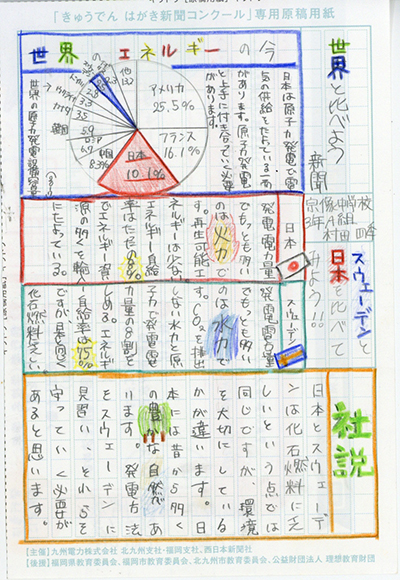 「きゅうでん はがき新聞コンクール」専用原稿用紙
世界と比べよう
新聞
宗像中学校
3年A組
村田 四季
世界エネルギーの今
日本は原子力発電で電
気の供給をたよっている
があります。原子力発電
と上手に付き合っていく必要
があります。
アメリカ
25.5%
フランス
16.1%
日本
10.1%
韓国
カナダ
3.5
3.3
5.9
他
世界の原子力発電設備容量
スウェーデンと
日本と比べて
みよう!!
日本
発電電力量
でもっとも多い
のは火力で
す。再生可能エ
ネルギーは少な
エネルギー自給
率はただの8%
でエネルギー資
源の多くを輸入
にたよっている。
スウェーデン
発電電力量
でもっとも多い
のは水力で
す。CO₂を排出
しない水力と原
子力で発電電
力量の8割を
しめる。エネルギ
ー自給率は75%
ですが、暑を向く
化石燃料乏しい
社説
日本とスウェーデ
ンは化石燃料に乏
しいという点では
同じですが、環境
を大切にしている
かが違います。日
本には昔から多く
の豊かな自然があ
ります。発電方法
をスウェーデンに
見習い、それらを
守っていく必要が
あると思います。
【主催】九州電力株式会社 北九州支社・福岡支社、西日本新聞社
【後援】福岡県教育委員会、福岡市教育委員会、北九州市教育委員会、公益財団法人 理想教育財団